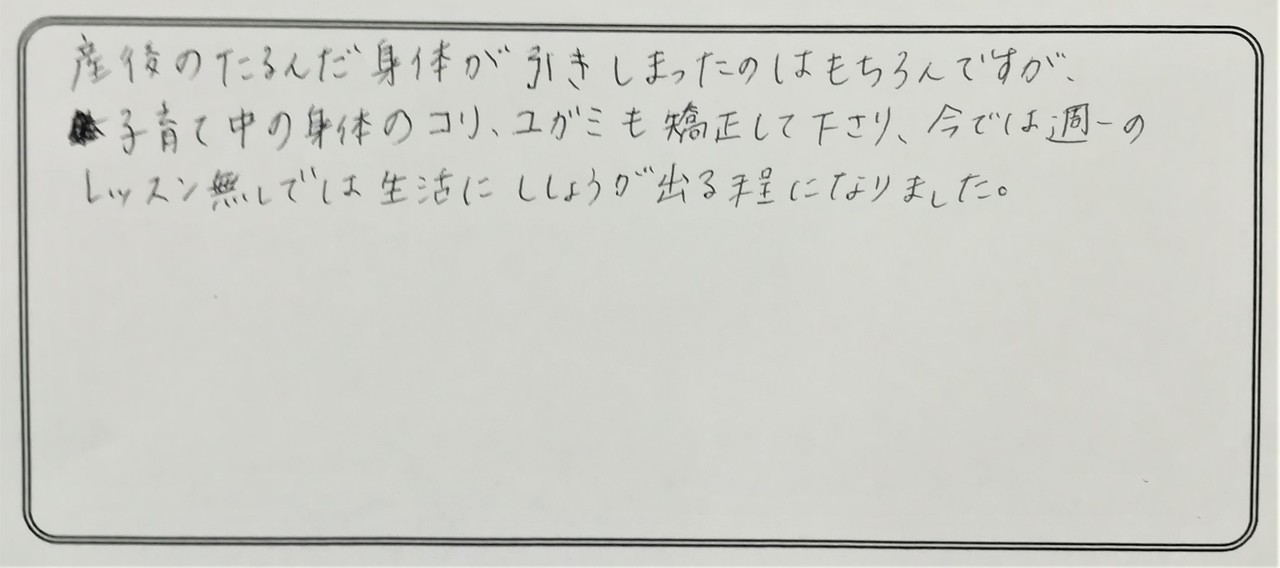 産後のたるんだ身体が引きしまったのはもちろんですが、
子育て中の身体のコリ、ユガミも矯正して下さり、今では週一の
レッスン無しでは生活にししょうが出る程になりました。